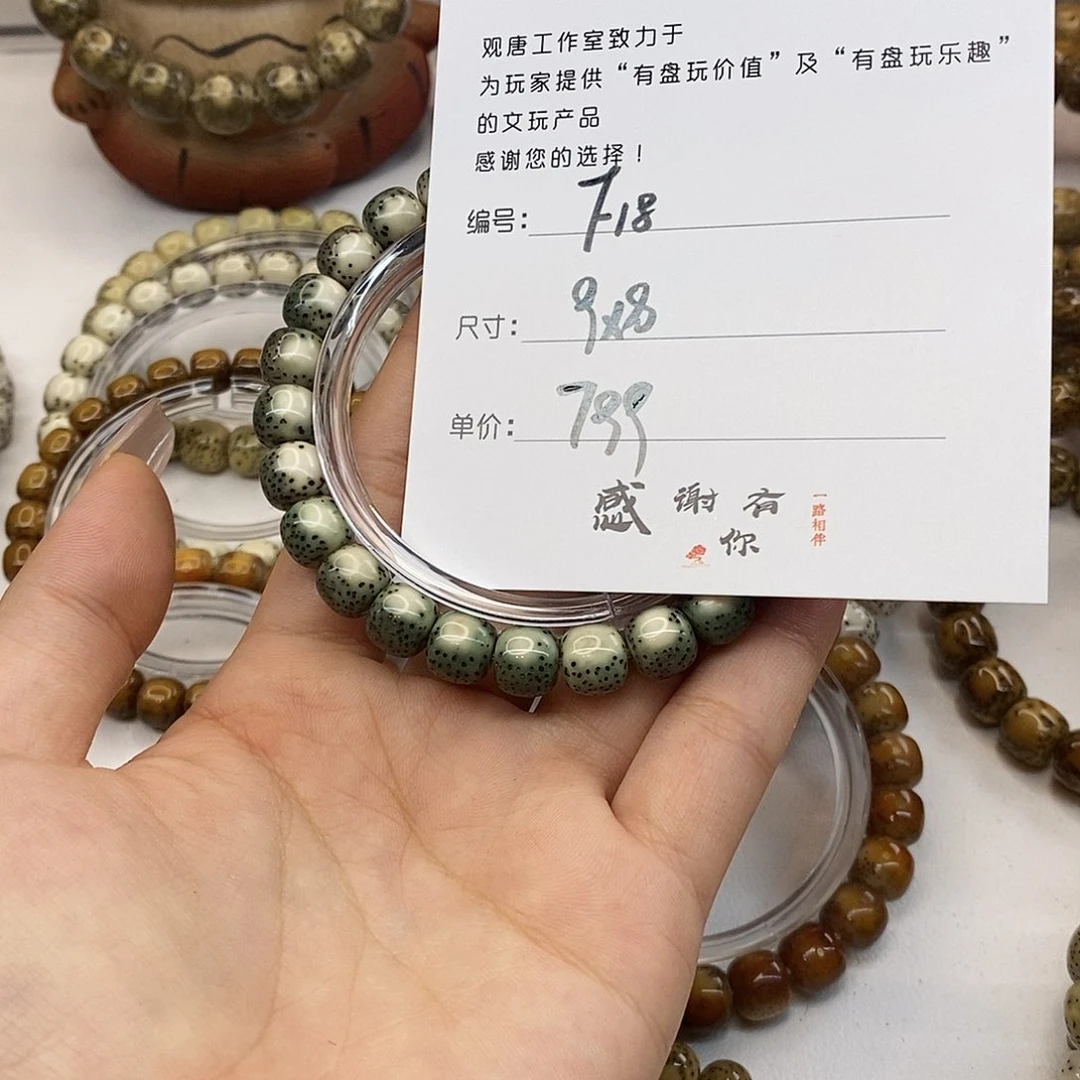 观唐工作室致力于
为玩家提供“有盘玩价值”及“有盘玩乐趣”
的文玩产品
感谢您的选择！
编号：7-18
尺寸：9x8
单价：799
感谢有你
一路相伴